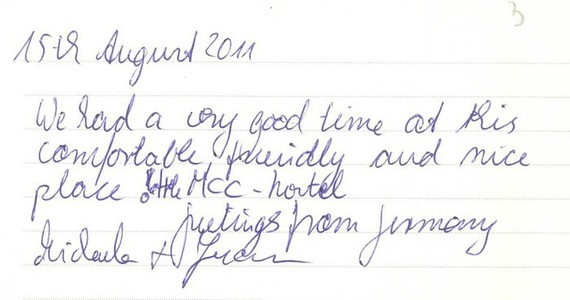 3
15th August 2011
We had a very good time at this
comfortable, friendly and nice
place! the MCC-hostel
greetings from Germany
Michaela +